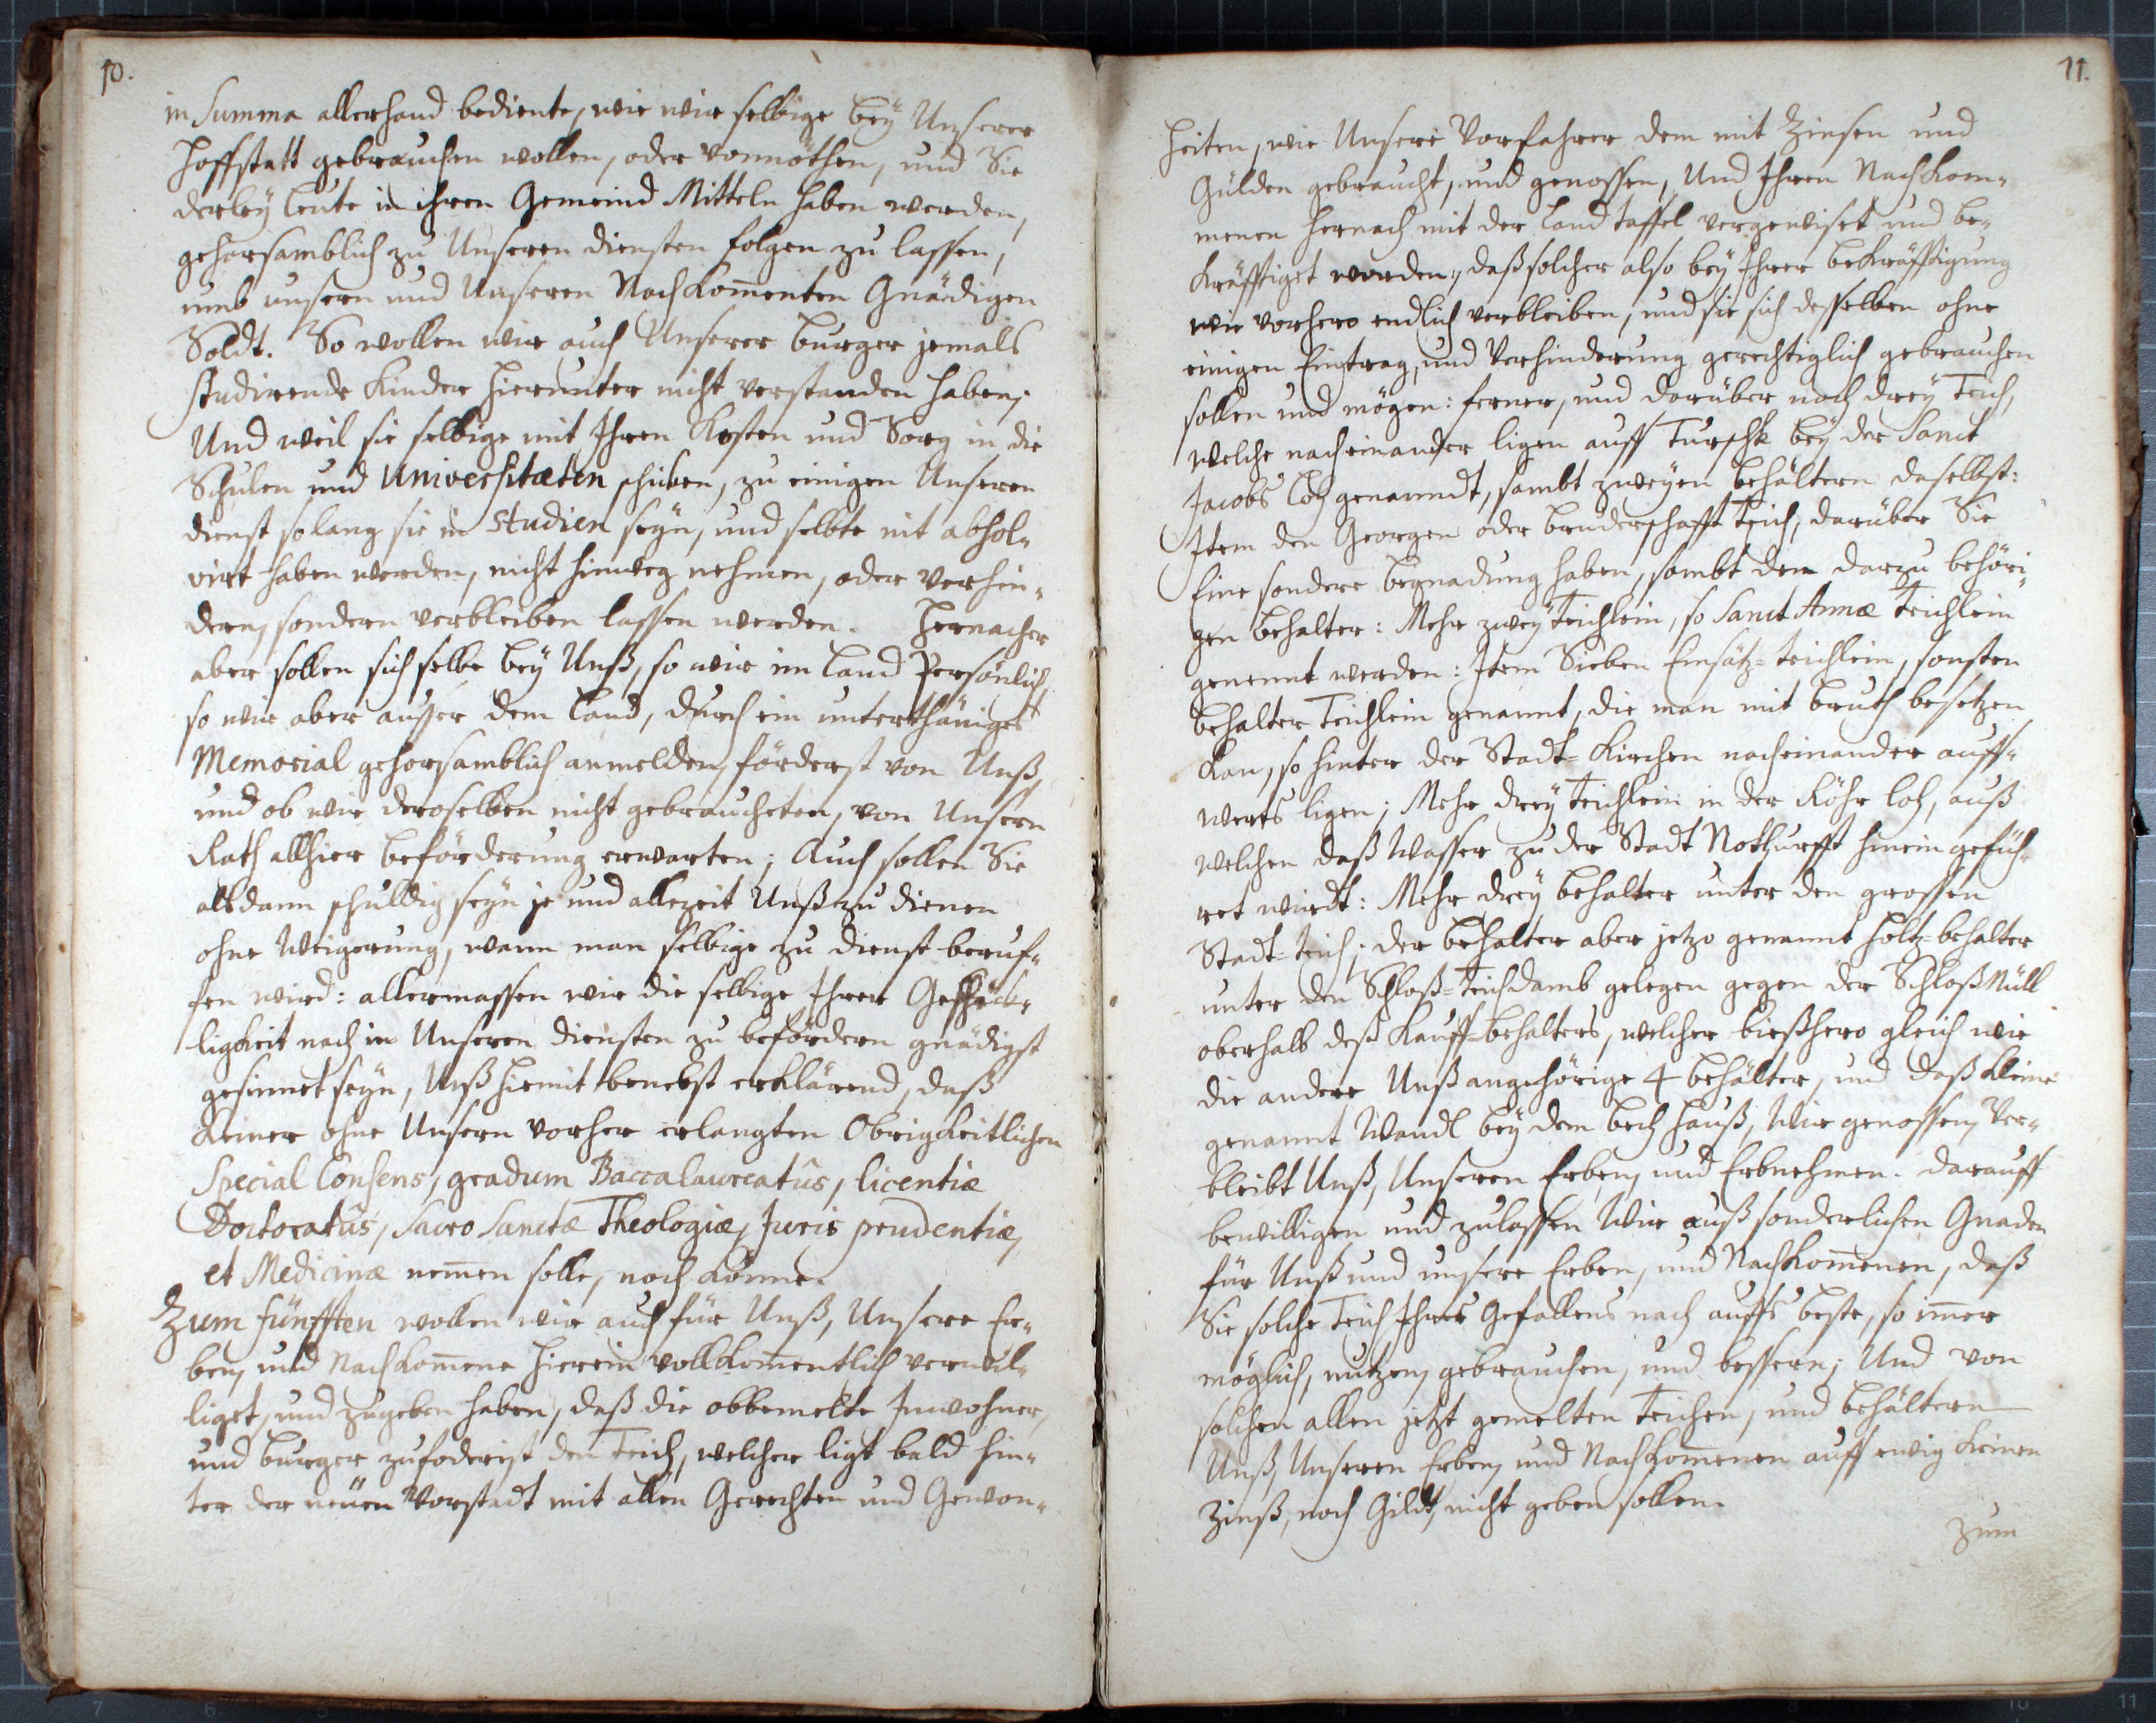 10.
in Summa allerhand bediente, wie wir selbige beÿ Unserer
Hoffstatt gebrauchen wollen, oder vonnöthen, und Sie
derleÿ leute in ihren Gemeind Mitteln haben werden,
gehorsamblich zu Unseren diensten folgen zu lassen,
umb unsern und Unseren Nachkom̄enten Gnädigen
Soldt. So wollen wir auch Unserer burger jemals
studirende Kinder hierunter nicht verstanden haben,
Und weil sie selbige mit Ihren Kosten und Sorg in die
Schulen und Universitæten schicken, zu einigen Unseren
dienst so lang sie in Studien seÿn, und selbte nit absol-
virt haben werden, nicht hinweg nehmen, oder verhin-
dern, sondern verbleiben lassen werden. Hernacher
aber sollen sich selbe beÿ Unß, so wir im Land Persönlich,
so wir aber ausser dem Land, durch ein unterthäniges
Memorial gehorsamblich anmelden, förderst von Unß,
und ob wir deroselben nicht gebraucheten, von Unsern
Rath allhier beförderung erwarten; Auch sollen Sie
alsdann schuldig seÿn je und allezeit Unß zu dienen
ohne Weigerung, wann man selbige zu dienst beruf-
fen wird: allermassen wir die selbige Ihrer Geschick-
ligkeit nach in Unseren diensten zu befördern gnädigst
gesinnet seÿn, Unß hiemit benebst erklärend, daß
keiner ohne Unsern vorher erlangten Obrigkeitlichen
Special Consens, gradum Baccalaureatûs, licentiæ
Doctoratûs, Sacro Sanctæ Theologiæ, Juris prudentiæ,
et Medicinæ nem̄en solle, noch könne.
Zum fünfften wollen wir auch für Unß, Unsere Er-
ben, und Nachkom̄ene hierein vollkom̄entlich verwil-
liget, und zugeben haben, daß die obbemelte Innwohner,
und burger zufoderist den Teich, welcher ligt bald hin-
ter der neüen Vorstadt mit allen Gerechten und Gewon-
11.
heiten, wie Unsere Vorfahrer dem mit Zinsen und
Gülden gebraucht, und genossen, Und Ihren Nachkom-
menen hernach mit der Land taffel vergewiset und be-
kräfftiget worden, daß solcher also beÿ Ihrer bekräfftigung
wie vorhero endlich verbleiben, und sie sich desselben ohne
einigen Eintrag, und Verhinderung gerechtiglich gebrauchen
sollen und mögen: ferner, und darüber noch dreÿ Teich,
welche nacheinander ligen auff Turschk beÿ der Sanct
Jacobs Loh genanndt, sambt zweÿen behältern daselbst:
Item den Georgen oder bruderschafft Teich, darüber Sie
Eine sondere begnadung haben, sambt dem darzu behöri-
gen behalter: Mehr zweÿ Teichlein, so Sanct Annæ Teichlein
genennt werden: Item Sieben Einsätz-teichlein, sonsten
behalter Teichlein genannt, die man mit bruth besetzen
kan, so hinter der Stadt-Kirchen nacheinander auff-
werts ligen; Mehr dreÿ Teichlein in der Röhr loh, auß
welchen daß Wasser zu der Stadt Nothurfft hinein gefüh-
ret wirdt: Mehr dreÿ behalter unter den grossen
Stadt-teich; der behalter aber jetzo genannt holtz-behalter
unter den Schloß-Teichdamb gelegen gegen der Schloß Müll
oberhalb deß Kauff-behalters, welcher bießhero gleich wie
die andere Unß angehörige 4 behälter, und daß kleine
genannt Wandl beÿ dem bech hauß, Wir genossen, ver-
bleibt Unß, Unseren Erben, und Erbnehmen. Darauff
bewilligen und zulassen Wir auß sonderlichen Gnaden
für Unß und unsere Erben, und Nachkom̄enen, daß
Sie solche Teich Ihres Gefallens nach auffs beste, so im̄er
möglich, nutzen, gebrauchen, und bessern; Und von
solchen allen jetzt gemelten Teichen, und behältern
Unß, Unseren Erben, und Nachkom̄enen auff ewig keinen
Zinß, noch Gildt, nicht geben sollen.
Zum